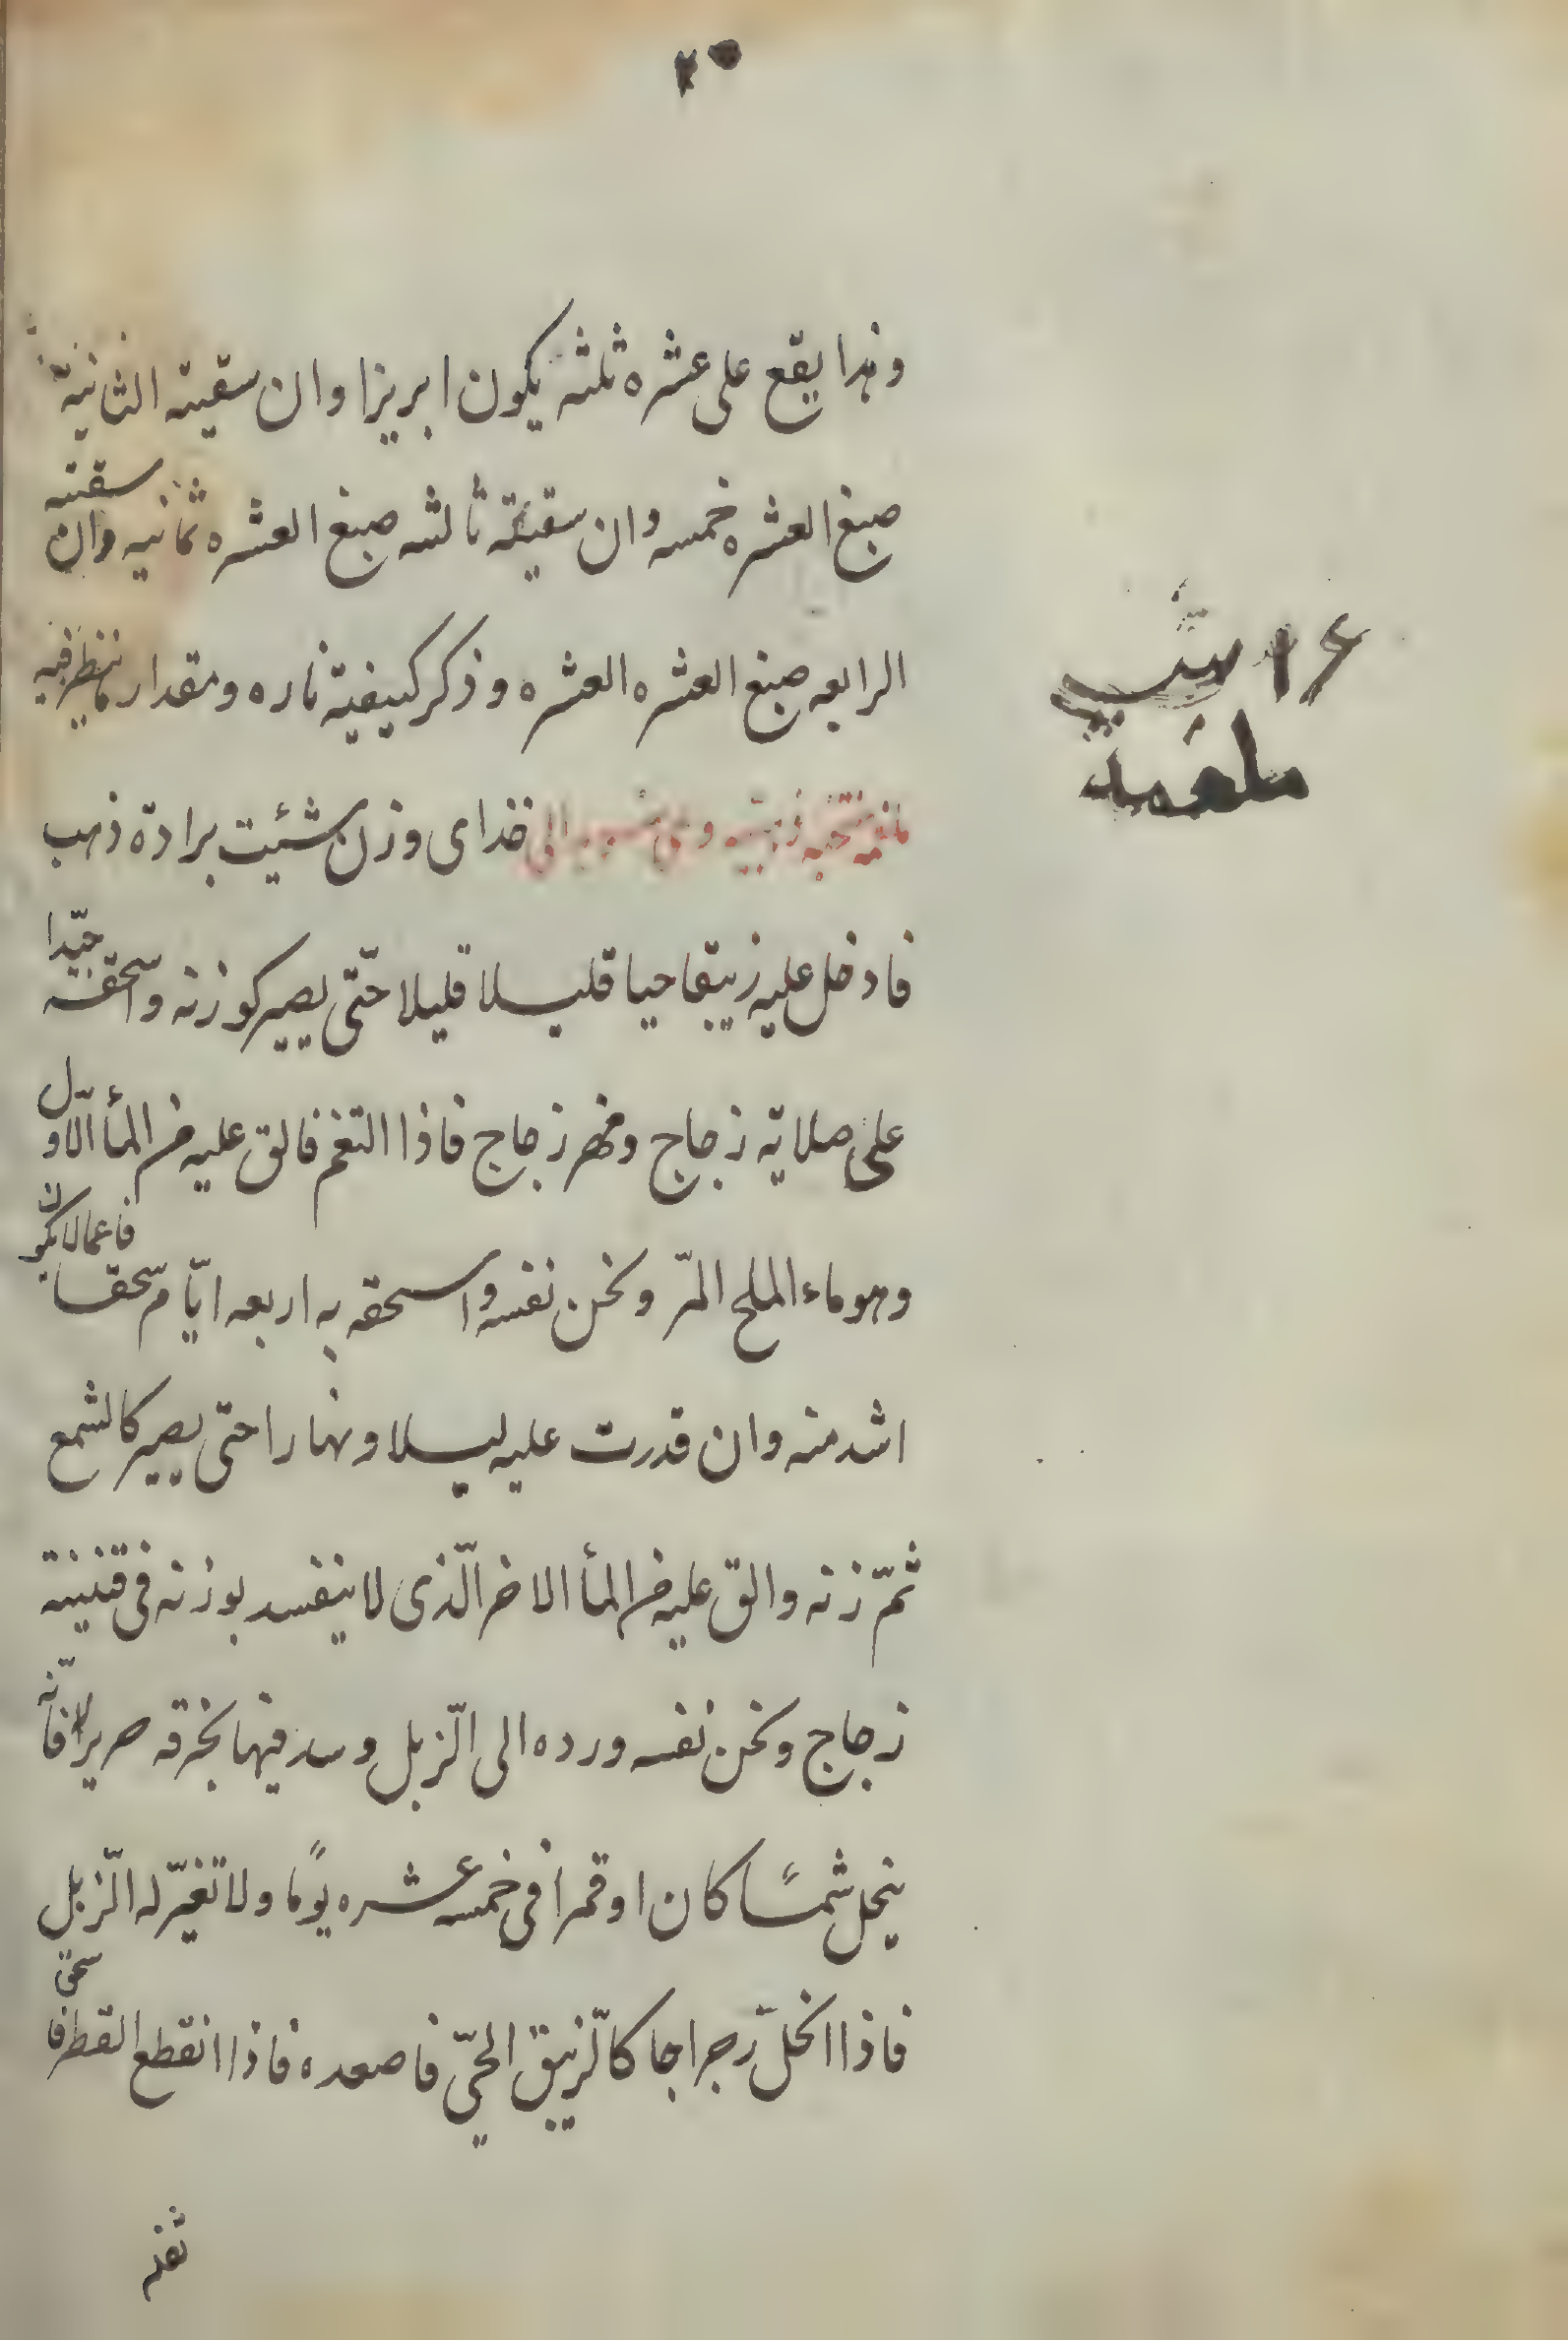 ٢٠
وهذا يقع على عشره ثلثه يكون ابريزا وان سقيته الثانية
صبغ العشره خمسه وان سقيته ثالثه صبغ العشره ثمانيه وان سقيته
الرابعه صبغ العشره العشره وذكر كيفية ناره ومقدار ما ينظر فيه
خذ اى وزن شئيت برادة ذهب
فادخل عليه زيبقا حيا قليلا قليلا حتّى يصير كوزنه واسحقه جيّدا
على صلايه زجاج وفهر زجاج فاذا التغم فالق عليه من المأ الاّول
وهو ماء الملح المرّ وثخن نفسه واسحقه به اربعه ايّام سحقا فاعما لا يكون
اشد منه وان قدرت عليه ليلا ونهارا حتى يصير كالشمع
ثمّ زنه والق عليه من المأ الاخر الّذى لا ينفسد بوزنه فى قنينه
زجاج وثخن نفسه ورده الى الّزبل وسد فيها بخرقه حرير لا فانّه
ينحل شمسًا كان او قمرا فى خمسه عشره يومًا ولا تغيّر له الّزبل
فاذا انحلّ رجراجا كالّزيبق الحىّ فاصعده فاذا انقطع القطر فاسحق
ثفله